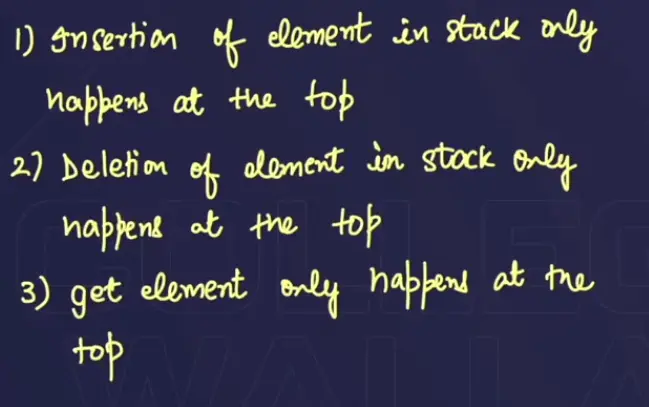 1) Insertion of element in stack only
happens at the top
2) Deletion of element in stack only
happens at the top
3) get element only happens at the
top
COLLEG
WALLA